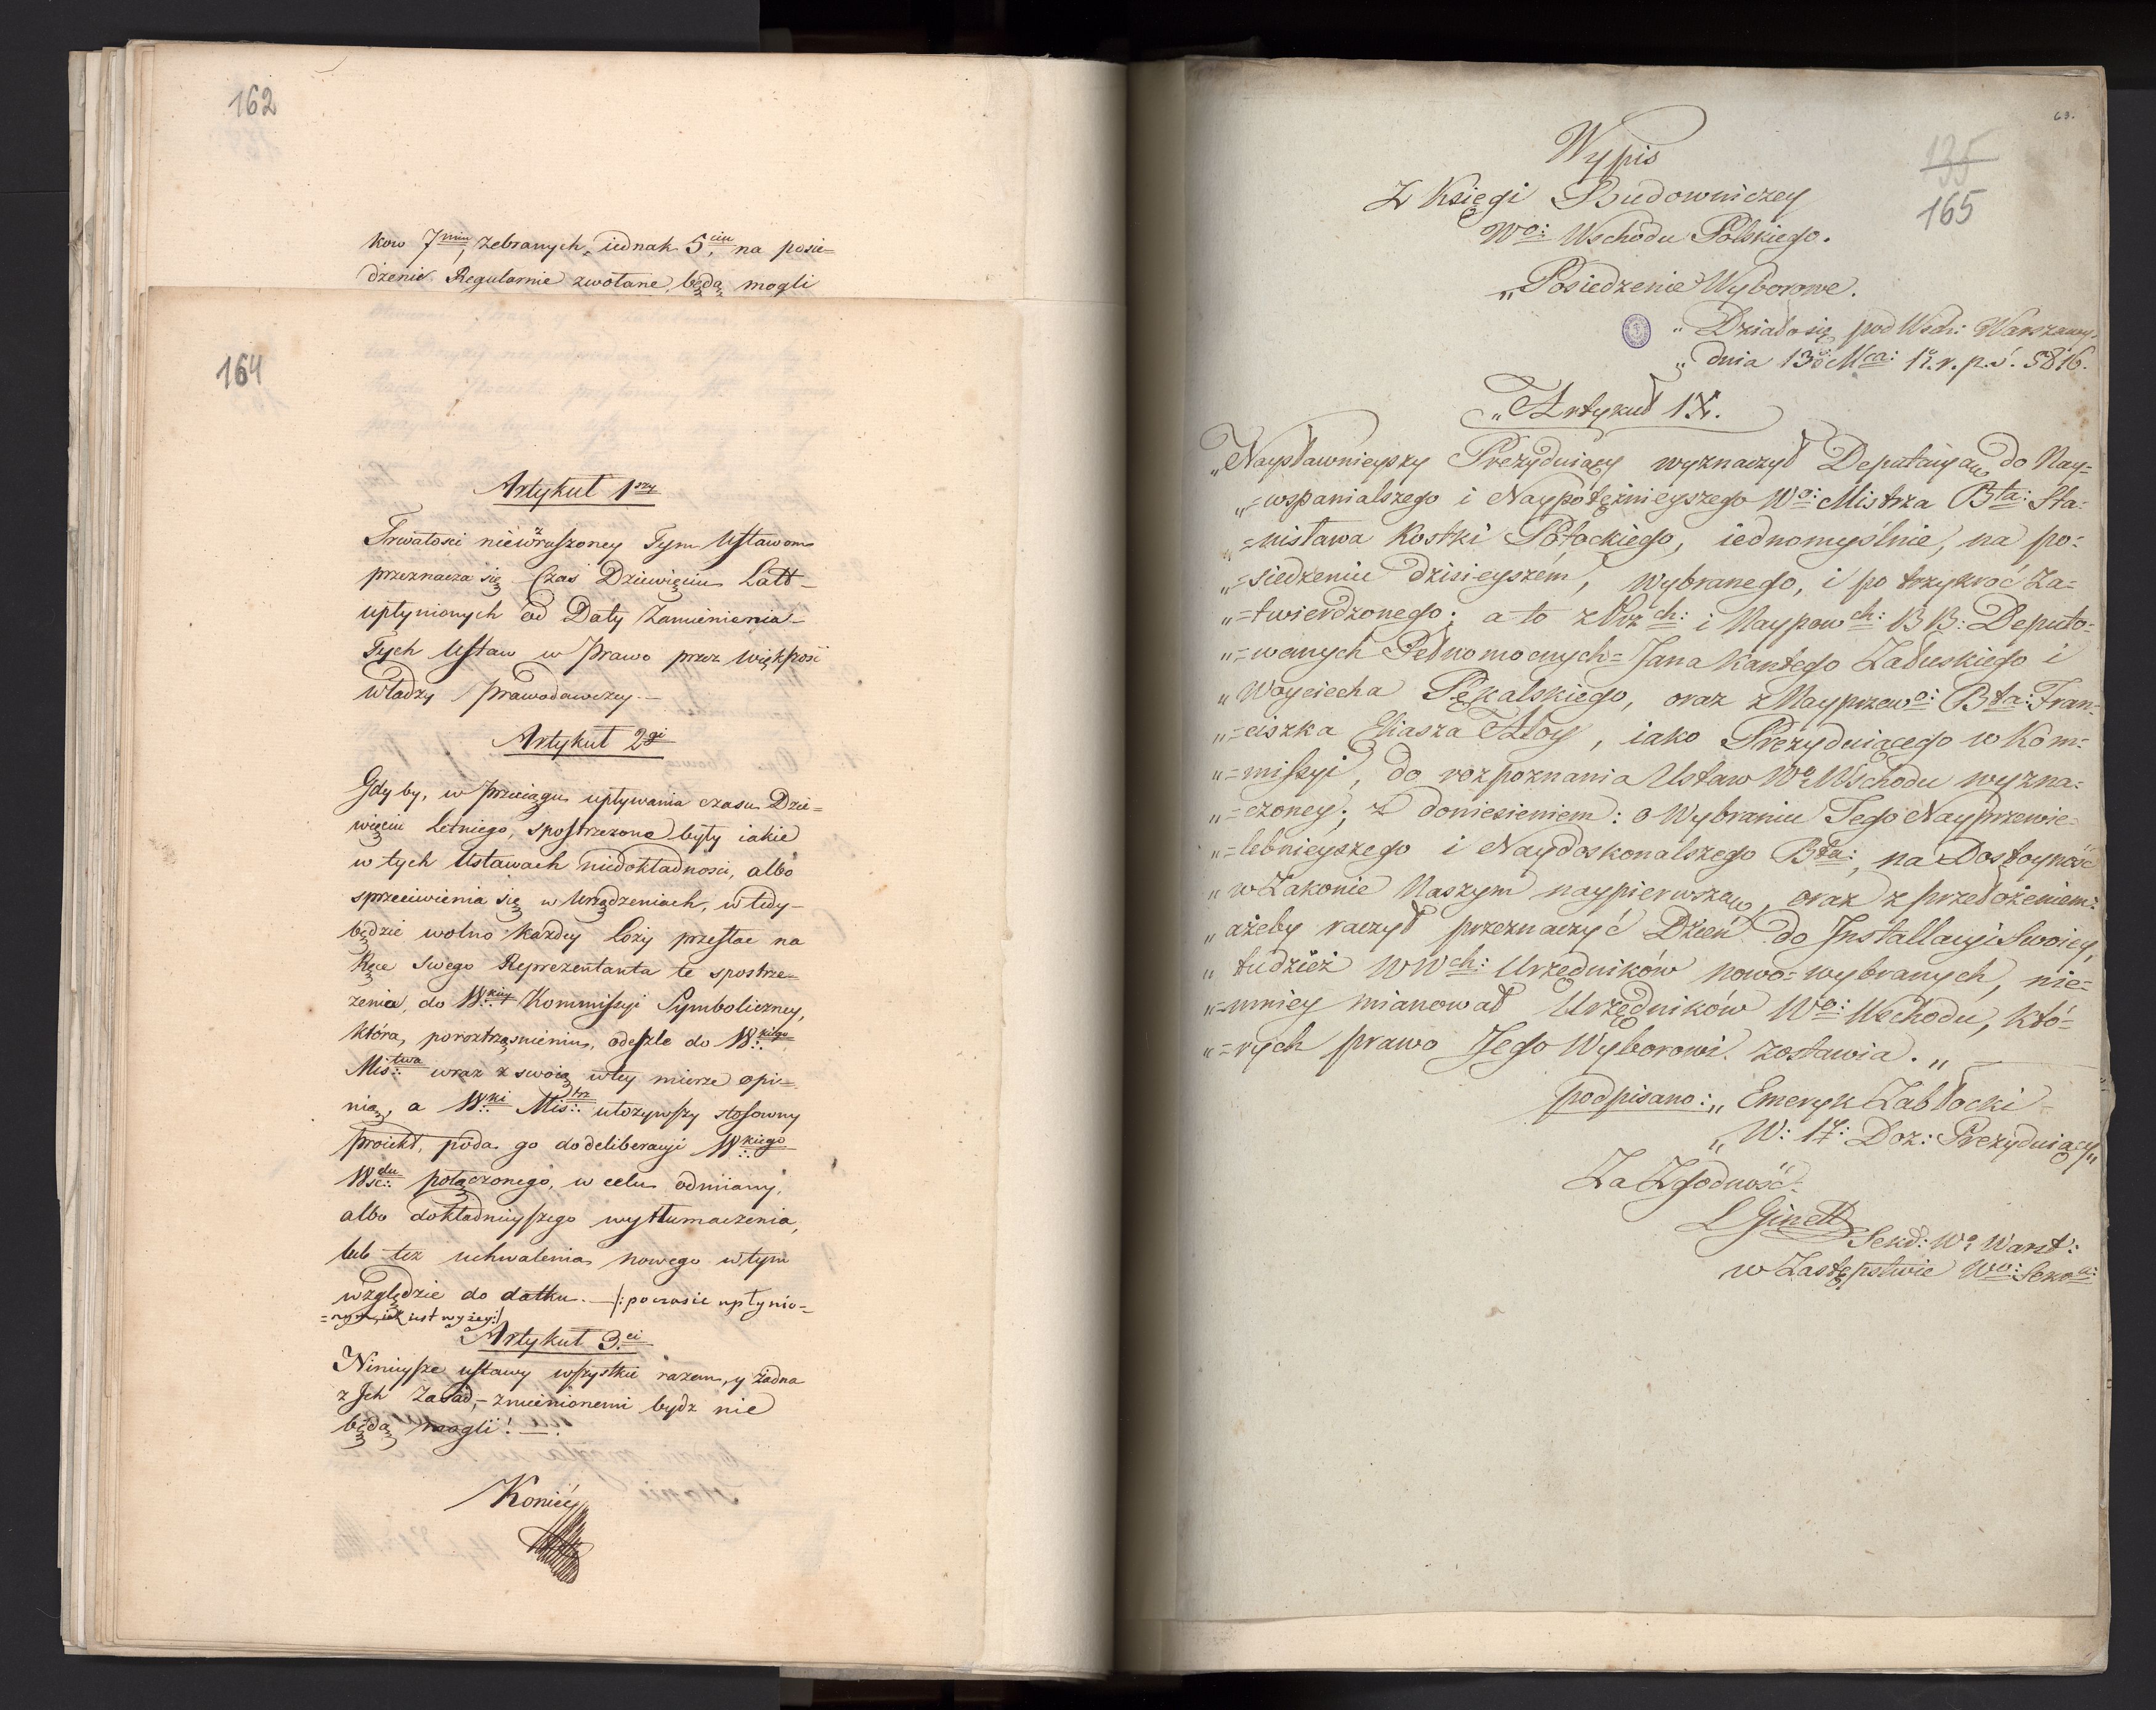 162
ków 7miu, zebranych, iednak 5ciu na posie=
dzenie Regularnie zwołane, będą mogli
164
Artykuł 1szy
Trwałości niewzruszoney Tym Ustawom
przeznacza się Czas Dziewięciu Latt
upłynionych od Daty Zamienienia
Tych Ustaw w Prawo przez większość
władzy Prawodawczey.—
Artykuł 2gi
Gdyby, w Przeciągu upływania czasu Dzie=
więciu Letniego, spostrzeżone były iakie
w tych Ustawach niedokładności, albo
sprzeciwienia się w Urządzeniach, wtedy
będzie wolno każdey Loży przesłać na
Ręce Swego Reprezentanta te spostrze=
żenia, do W∴kiey Kommissyi Symboliczney,
która, po roztrząśnieniu, odeszle do W∴kiego
Mis∴twa wraz z swoią w tey mierze opi=
nią, a W∴ki Mis∴trz ułożywszy stosowny
proiekt, poda go do deliberacyi W∴kiego
Wsc∴du połączonego, w celu odmiany,
albo dokładnieyszego wytłumaczenia,
lub też uchwalenia nowego w tym
względzie do datku.—/: po czasie upłynio=
=nym, iak iest wyżey:/
Artykuł 3ci
Ninieysze ustawy wszystkie razem, y żadna
z Ich Zasad,- zmienionemi bydź nie
będą mogli!
Koniec
63.
135
165
Wypis
Z Księgi Budowniczey
Wo: Wschodu Polskiego.
„Posiedzenie Wyborowe.
„Działo się pod Wsch: Warszawy,
„dnia 13o Mca: 1r. r. p. ś. 5816.
„Artykuł IX.
„Naysławnieyszy Prezyduiący wyznaczył Deputacyą do Nay=
„=wspanialszego i Naypotężnieyszego Wo: Mistrza Bta: Sta=
„=nisława Kostki Potockiego, iednomyślnie, na po=
„=siedzeniu dzisieyszém, wybranego, i po trzykroć za=
„=twierdzonego; a to z Prz ch: i Naypow ch: BB: Deputo=
„=wanych Pełnomocnych= Jana Kantego Załuskiego i
„Woyciecha Pękalskiego, oraz z Nayprzewo: Bta: Fran=
„=ciszka Eliasza Aloy, iako Prezyduiącego w Kom=
„=missyi, do rozpoznania Ustaw Wo Wschodu wyzna=
„=czoney; z doniesieniem: o Wybraniu Tego Nayprzewie=
„=lebnieyszego i Naydoskonalszego Bta: na Dostoyność
„w Zakonie Naszym naypierwszą, oraz z przełożeniem:
„ażeby raczył przeznaczyć Dzień do Installacyi Swoiey,
„tudzież WWch: Urzędników nowo=wybranych, nie=
„=mniey mianował Urzędników Wo: Wschodu, któ=
„=rych prawo Jego Wyborowi zostawia.„
podpisano: „Emeryk Zabłocki
„W: 1y: Doz: Prezyduiący„
Za Zgodność
L Ginett
Sekd: Wo: Warst:
w Zastępstwie Wo: Sekra: